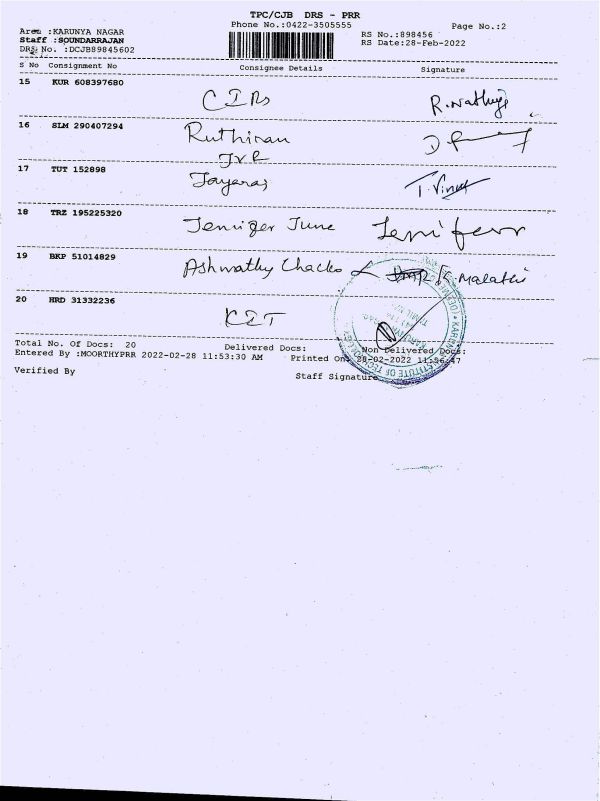 TPC/CJB DRS - PRR
Phone No.:0422-3505555
Page No.:2
Area :KARUNYA NAGAR
RS No.:898456
Staff :SOUNDARRAJAN
RS Date:28-Feb-2022
DRS No. :DCJB89845602
S No Consignment No Consignee Details Signature
15 KUR 608397680
CIRs R.
16 SLM 290407294
Ruthiran
JVR
17 TUT 152898
Jayaraj T.
18 TRZ 195225320
Jennifer June Jenifer
19 BKP 51014829
Ashwathy Chacko K.Malathi
20 HRD 31332236
KIT
Total No. Of Docs: 20 Delivered Docs: Non Delivered Docs:
Entered By :MOORTHYPRR 2022-02-28 11:53:30 AM Printed On: 28-02-2022 11:56:47
Verified By Staff Signature